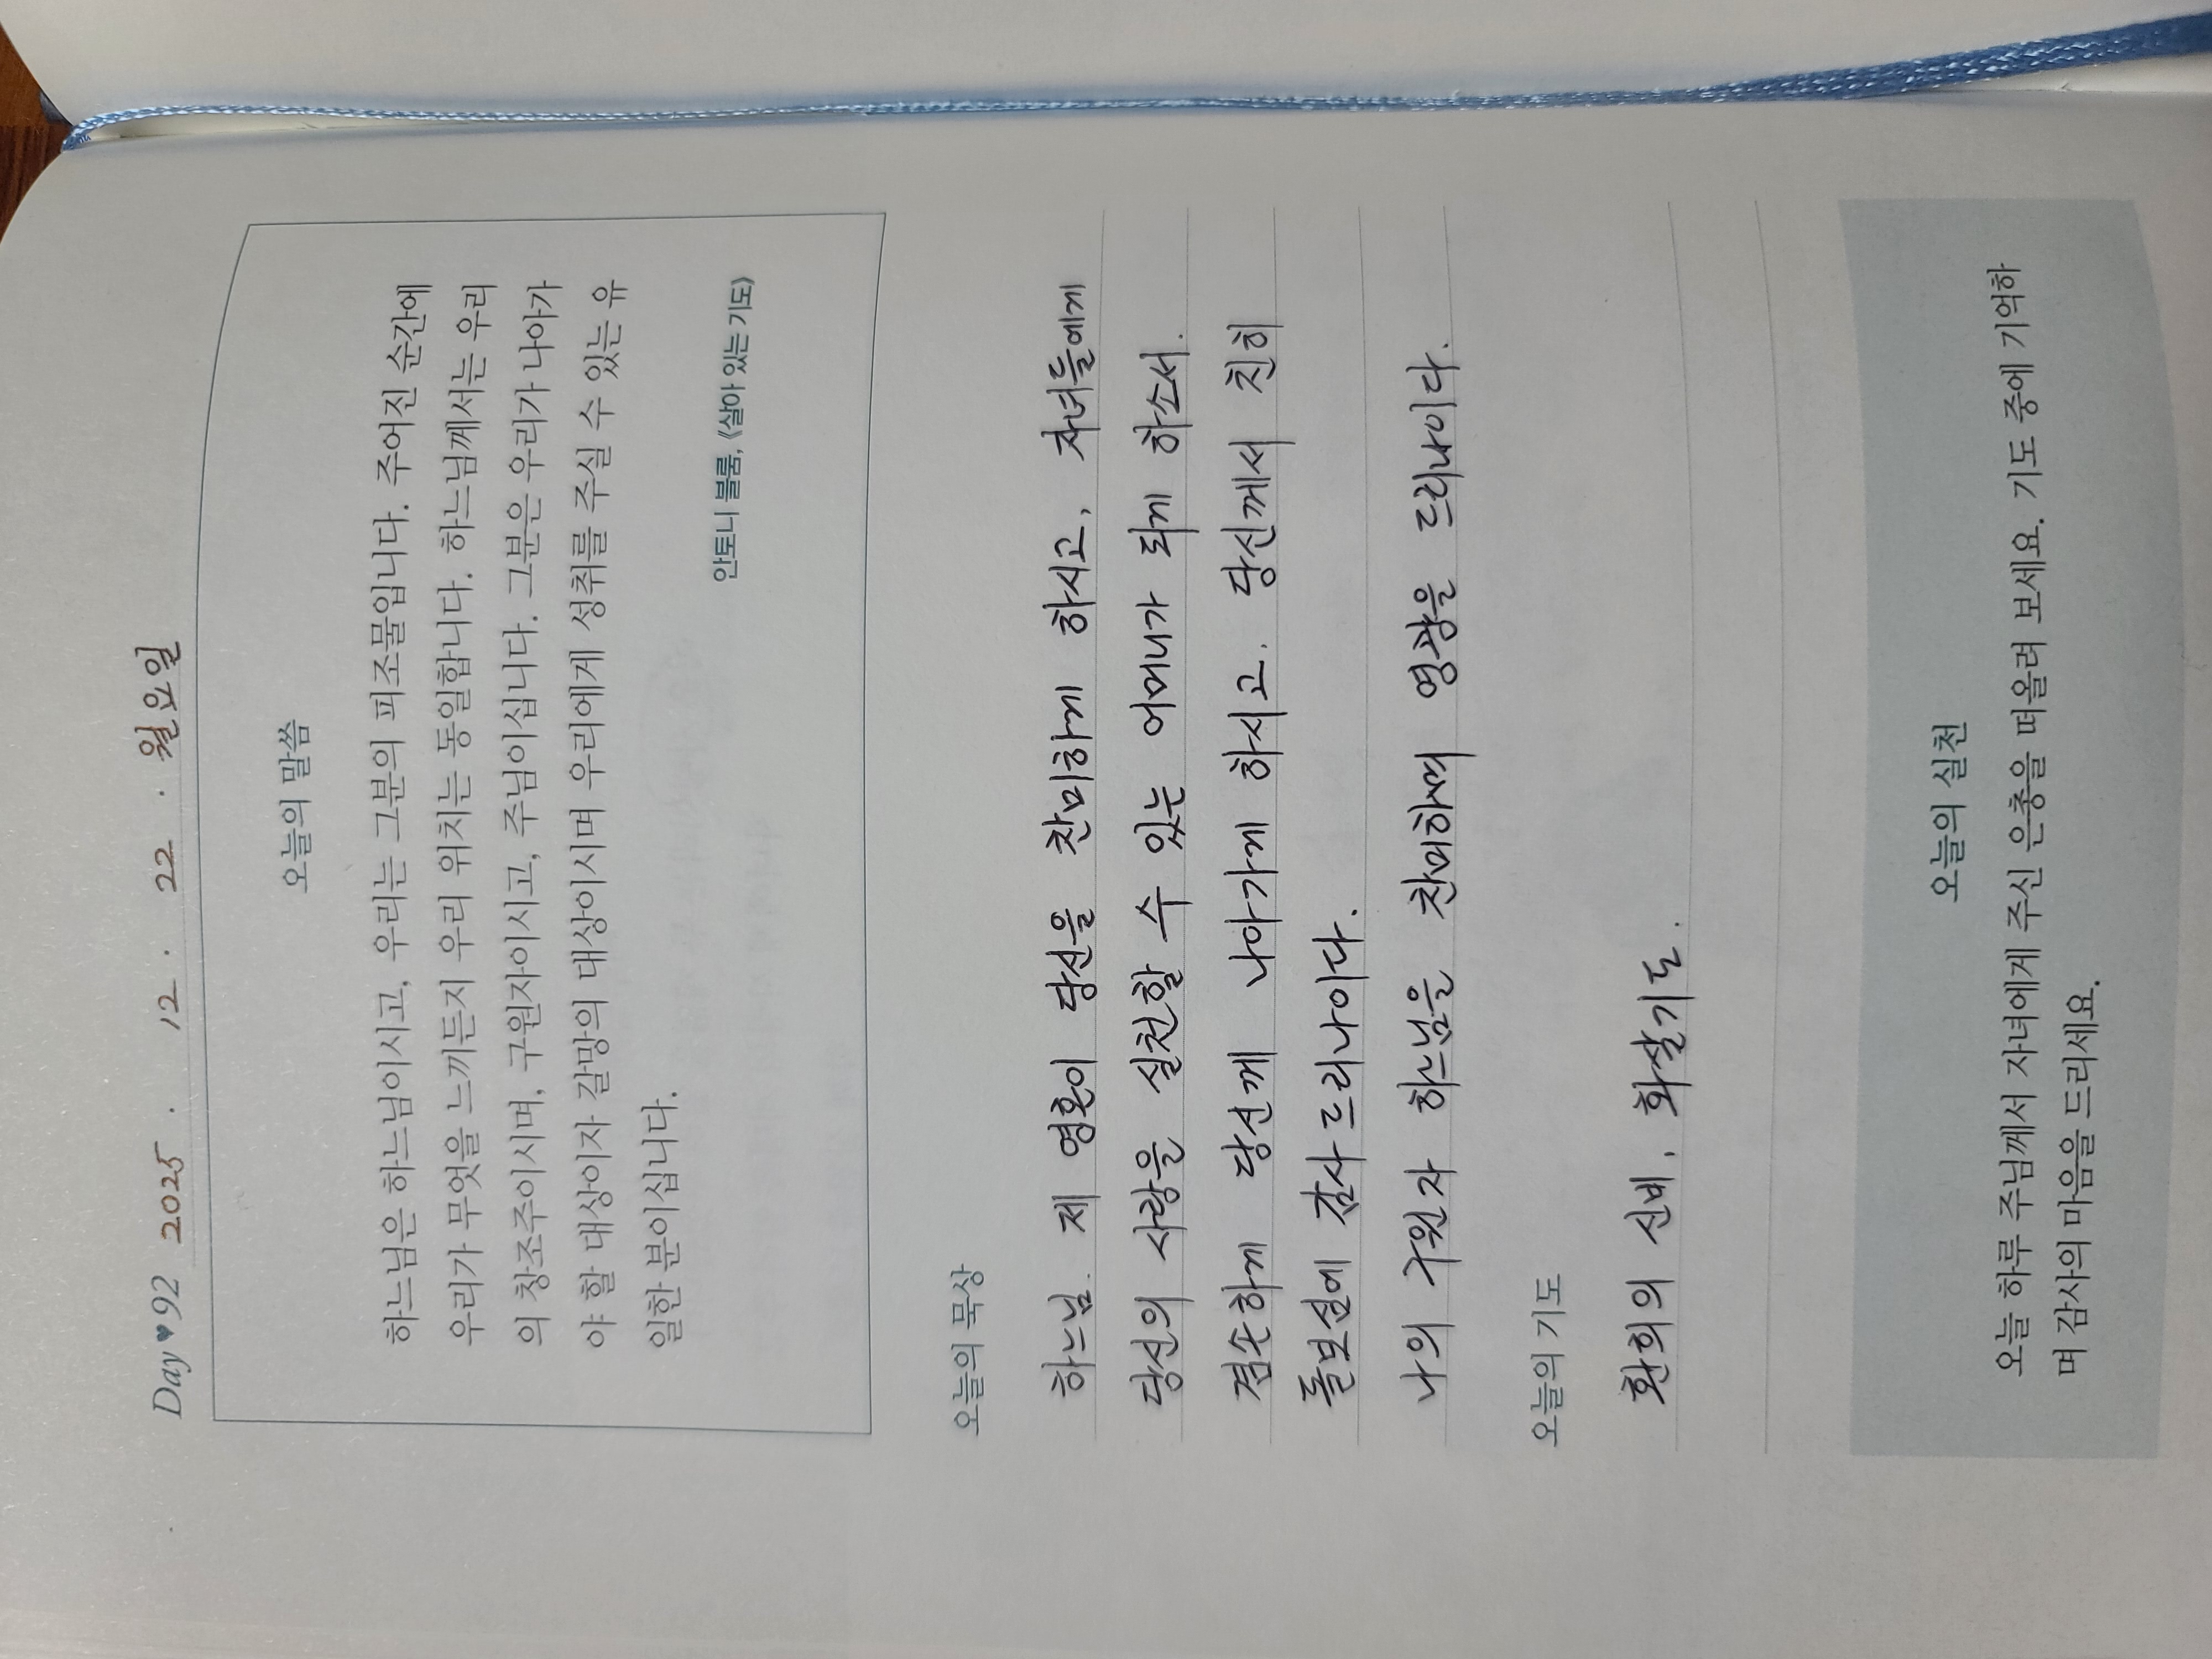 Day♥92 2025. 12. 22. 월요일
오늘의 말씀
하느님은 하느님이시고, 우리는 그분의 피조물입니다. 주어진 순간에
우리가 무엇을 느끼든지 우리 위치는 동일합니다. 하느님께서는 우리
의 창조주이시며, 구원자이시고, 주님이십니다. 그분은 우리가 나아가
야 할 대상이자 갈망의 대상이시며 우리에게 성취를 주실 수 있는 유
일한 분이십니다.
안토니 블룸, 《살아 있는 기도》
오늘의 묵상
하느님. 제 영혼이 당신을 찬미하게 하시고, 자녀들에게
당신의 사랑을 실천할 수 있는 어머니가 되게 하소서.
겸손하게 당신께 나아가게 하시고. 당신께서 친히
돌보심에 감사드리나이다.
나의 구원자 하느님을 찬미하며 영광을 드리나이다.
오늘의 기도
환희의 신비, 화살기도.
오늘의 실천
오늘 하루 주님께서 자녀에게 주신 은총을 떠올려 보세요. 기도 중에 기억하
며 감사의 마음을 드리세요.